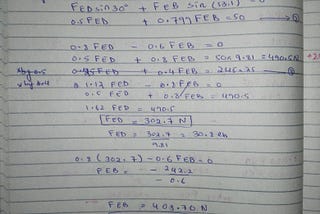 FED sin 30° + FEB sin (53.1) = 50
0.5 FED + 0.799 FEB = 50
0.8 FED - 0.6 FEB = 0
0.5 FED + 0.8 FEB = 50×9.81 = 490.5N
+ 0.4 FEB =
1.12 FED - 0.8 FEB = 0
0.5 FED + 0.8 FEB = 490.5
1.62 FED = 490.5
FED = 302.7 N
FED = 302.7 = 30.8
9.81
0.8 (302.7) - 0.6 FEB = 0
FEB = - 242.2
- 0.6
FEB = 403.70 N